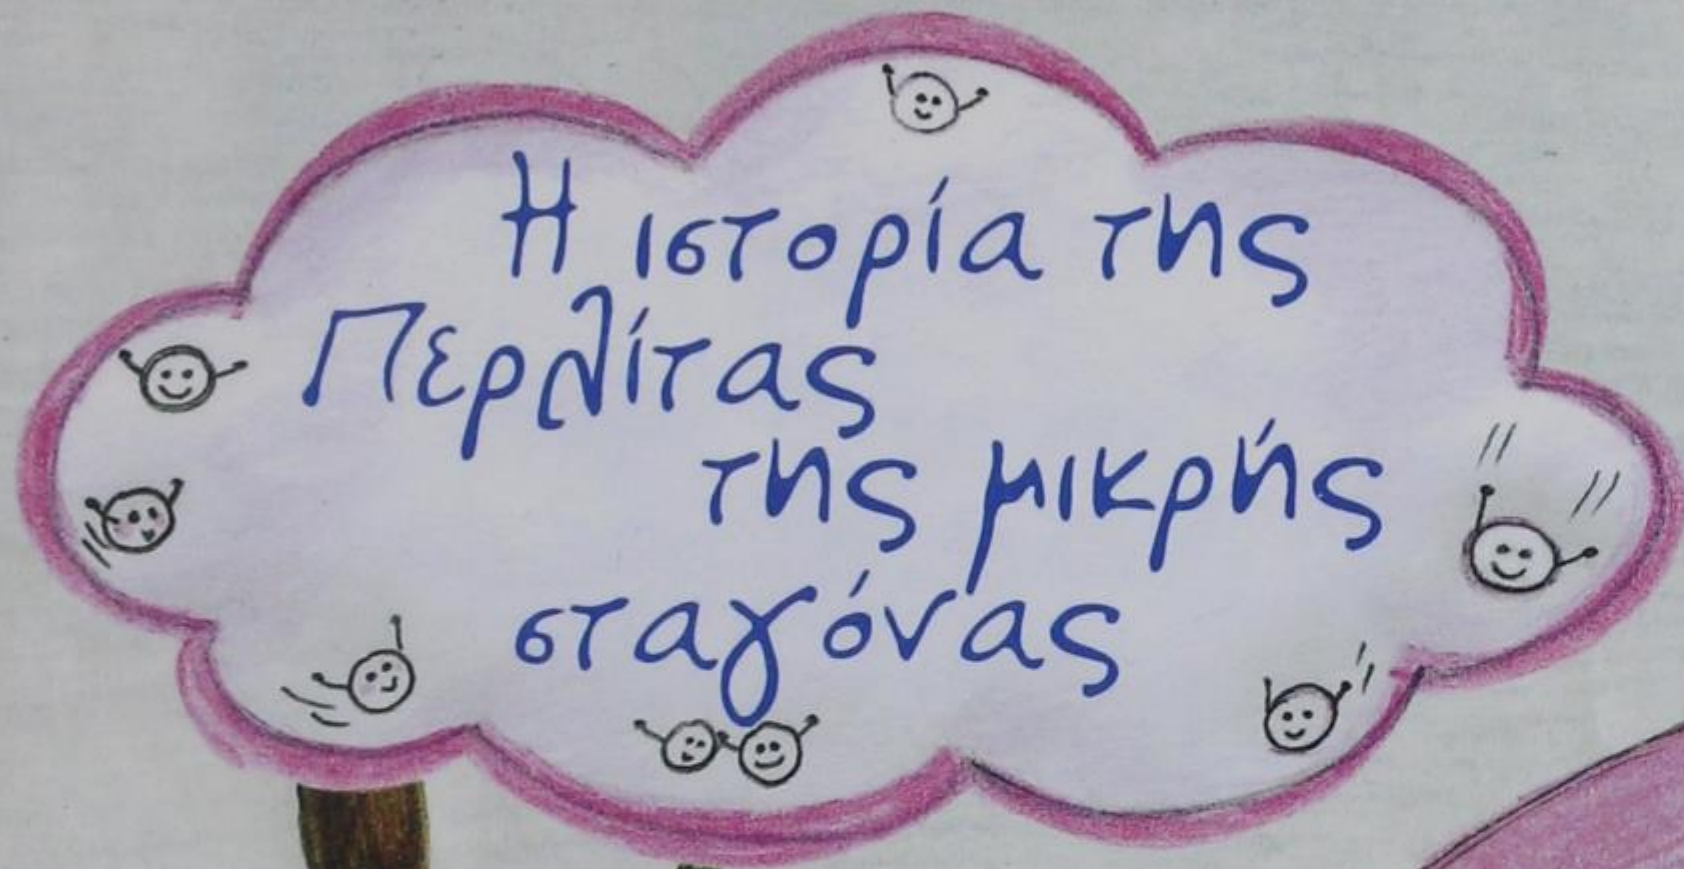 Η ιστορία της
Περλίτας
της μικρής
σταγόνας